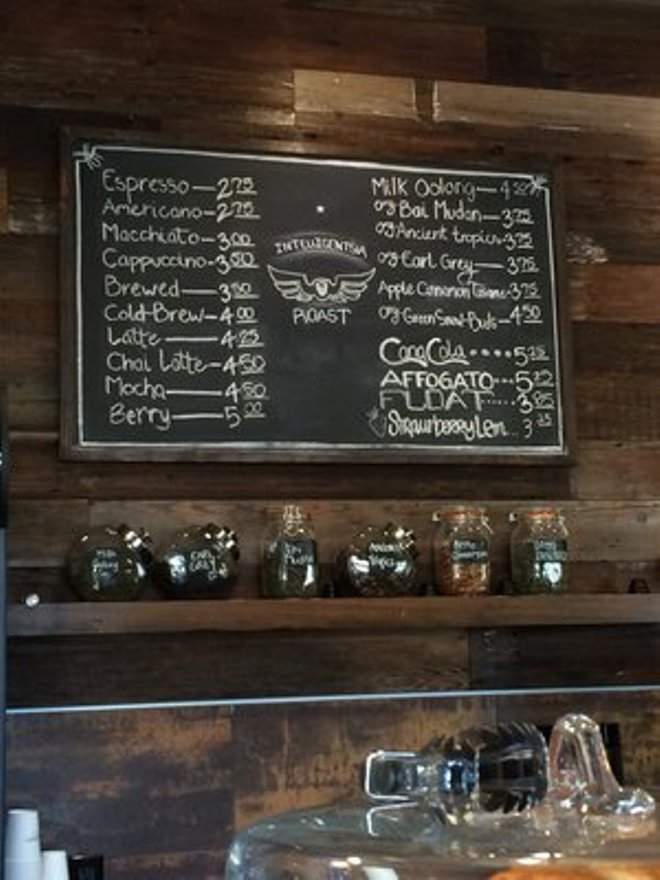 Espresso—2.75
Americano—2.75
Macchiato—3.00
Cappuccino—3.50
Brewed—3.50
Cold-Brew—4.00
Latte—4.25
Chai Latte—4.50
Mocha—4.50
Berry—5.00
INTELLIGENTSIA
ROAST
Milk Oolong—4.50
org Bai Mudan—3.75
org Ancient tropics—3.75
org Earl Grey—3.75
Apple Cinnamon 3.75
org Green 4.50
CocaCola....5
AFFOGATO...5
FLOAT......3
Strawberry Lem...3
Milk Oolong
Earl Grey